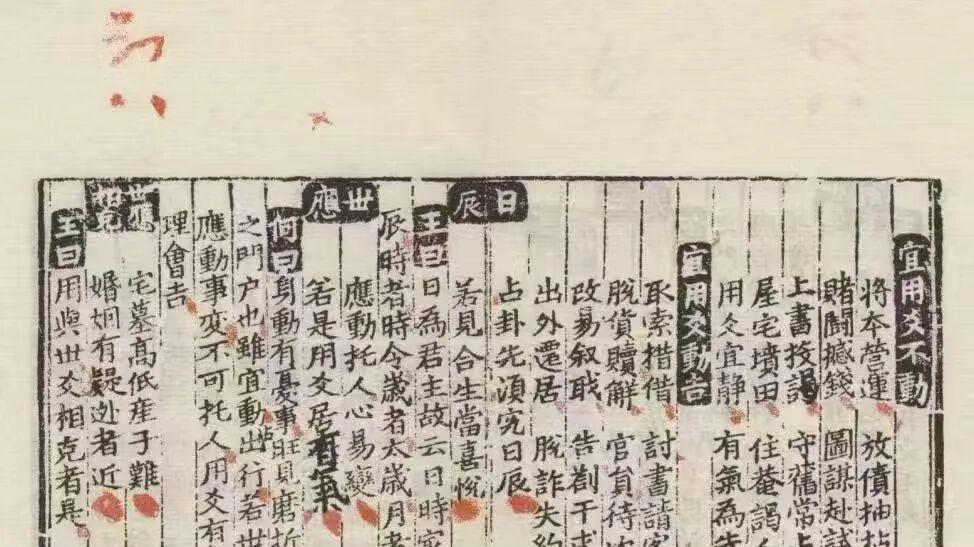 宜用爻不動
將本營運 放債抽拈
賭鬭撼錢 圖謀赴試
上書投謁 守舊常上
屋宅墳田 住菴謁人
用爻宜靜 有氣為先
宜用爻動吉
取索揩借 討書請客
脫貨贖解 官負待次
改易叙耺 告劄干求
出外還居 脫詐失約
占卦先須究日辰
日辰
若見合生當喜悅
王曰日為君主故云日時家
辰時者時令歲者太歲月者
世應
應動托人心易變
若是用爻居有氣
何曰身動有憂事旺見磨折
之門户也雖宜動出行若世
應動事變不可托人用爻有
理會吉
世應
宅墓髙低産子難
婚姻有疑逊者近
王曰用與世爻相克者是